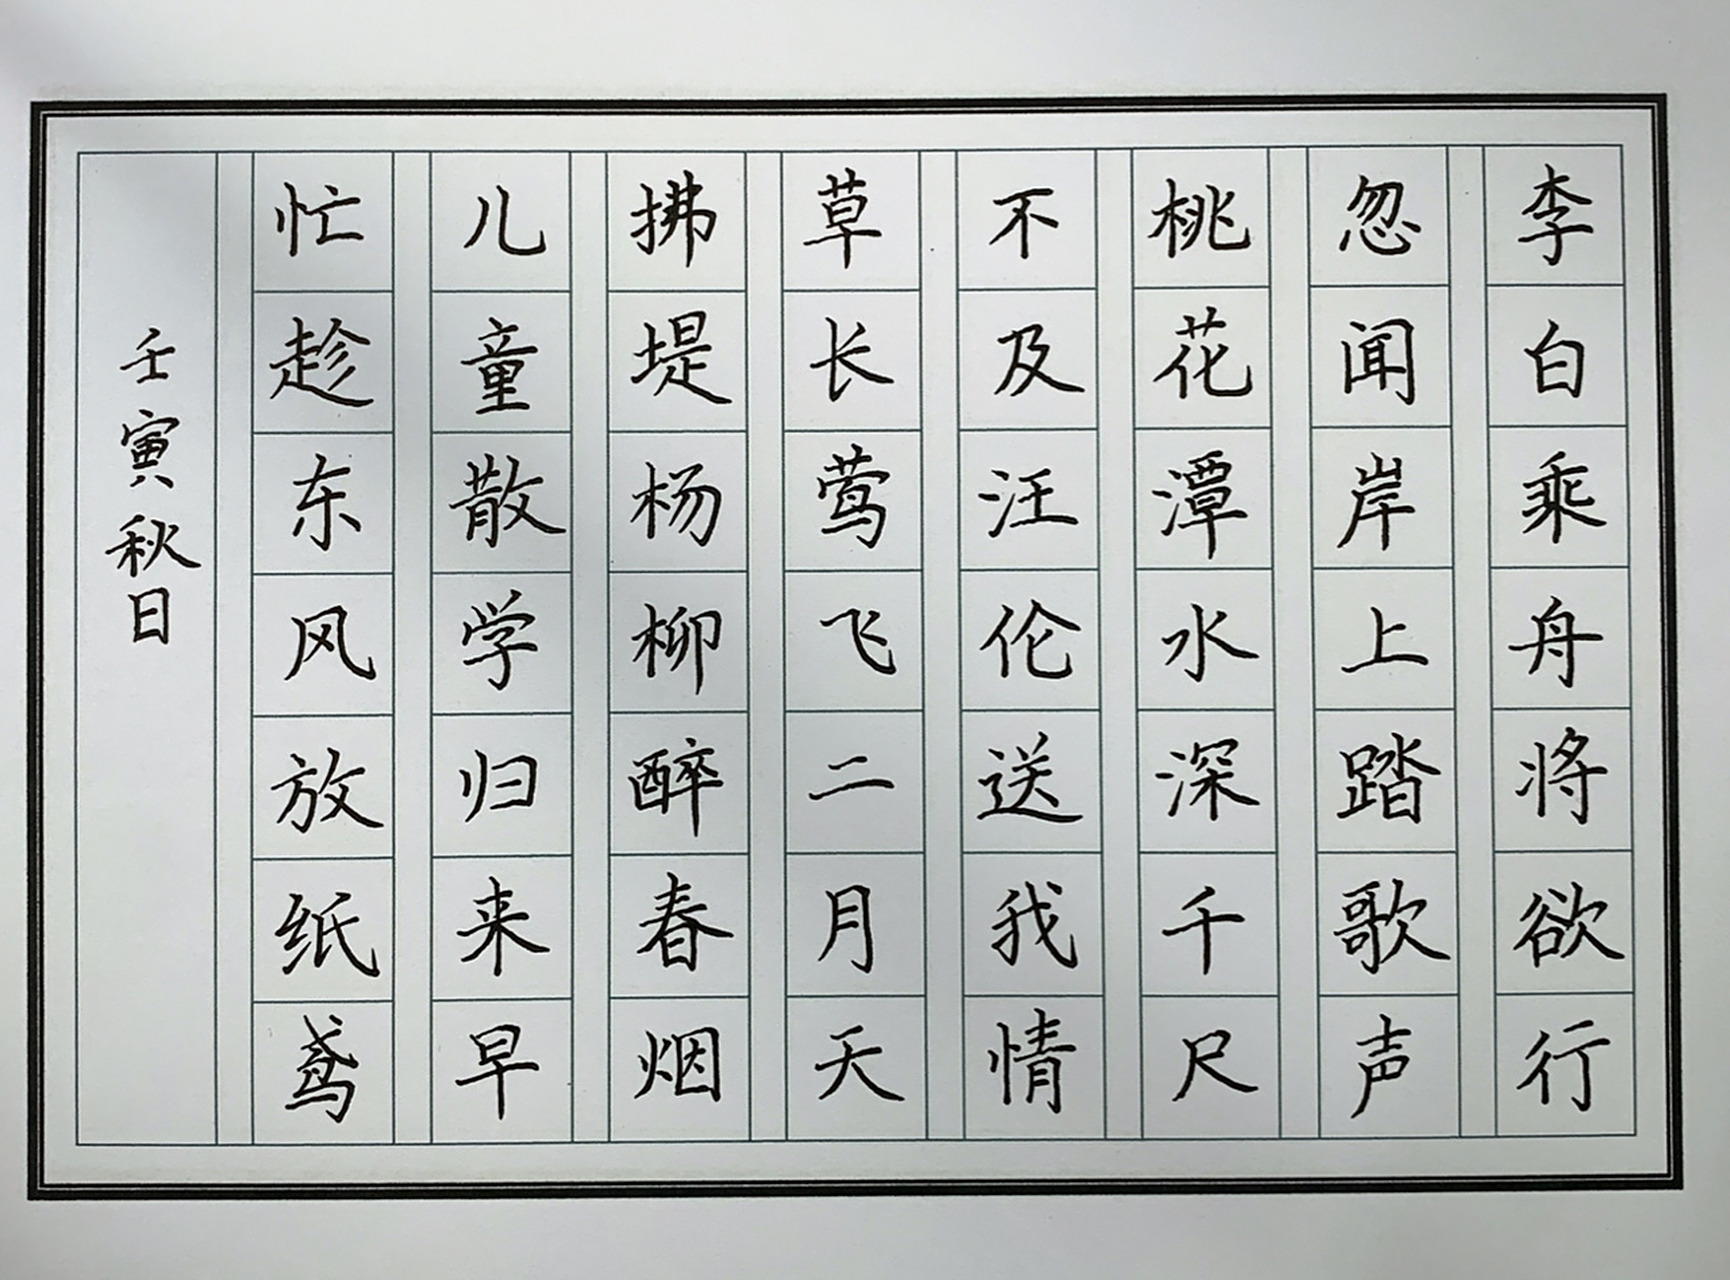 李白乘舟将欲行
忽闻岸上踏歌声
桃花潭水深千尺
不及汪伦送我情
草长莺飞二月天
拂堤杨柳醉春烟
儿童散学归来早
忙趁东风放纸鸢
壬寅秋日